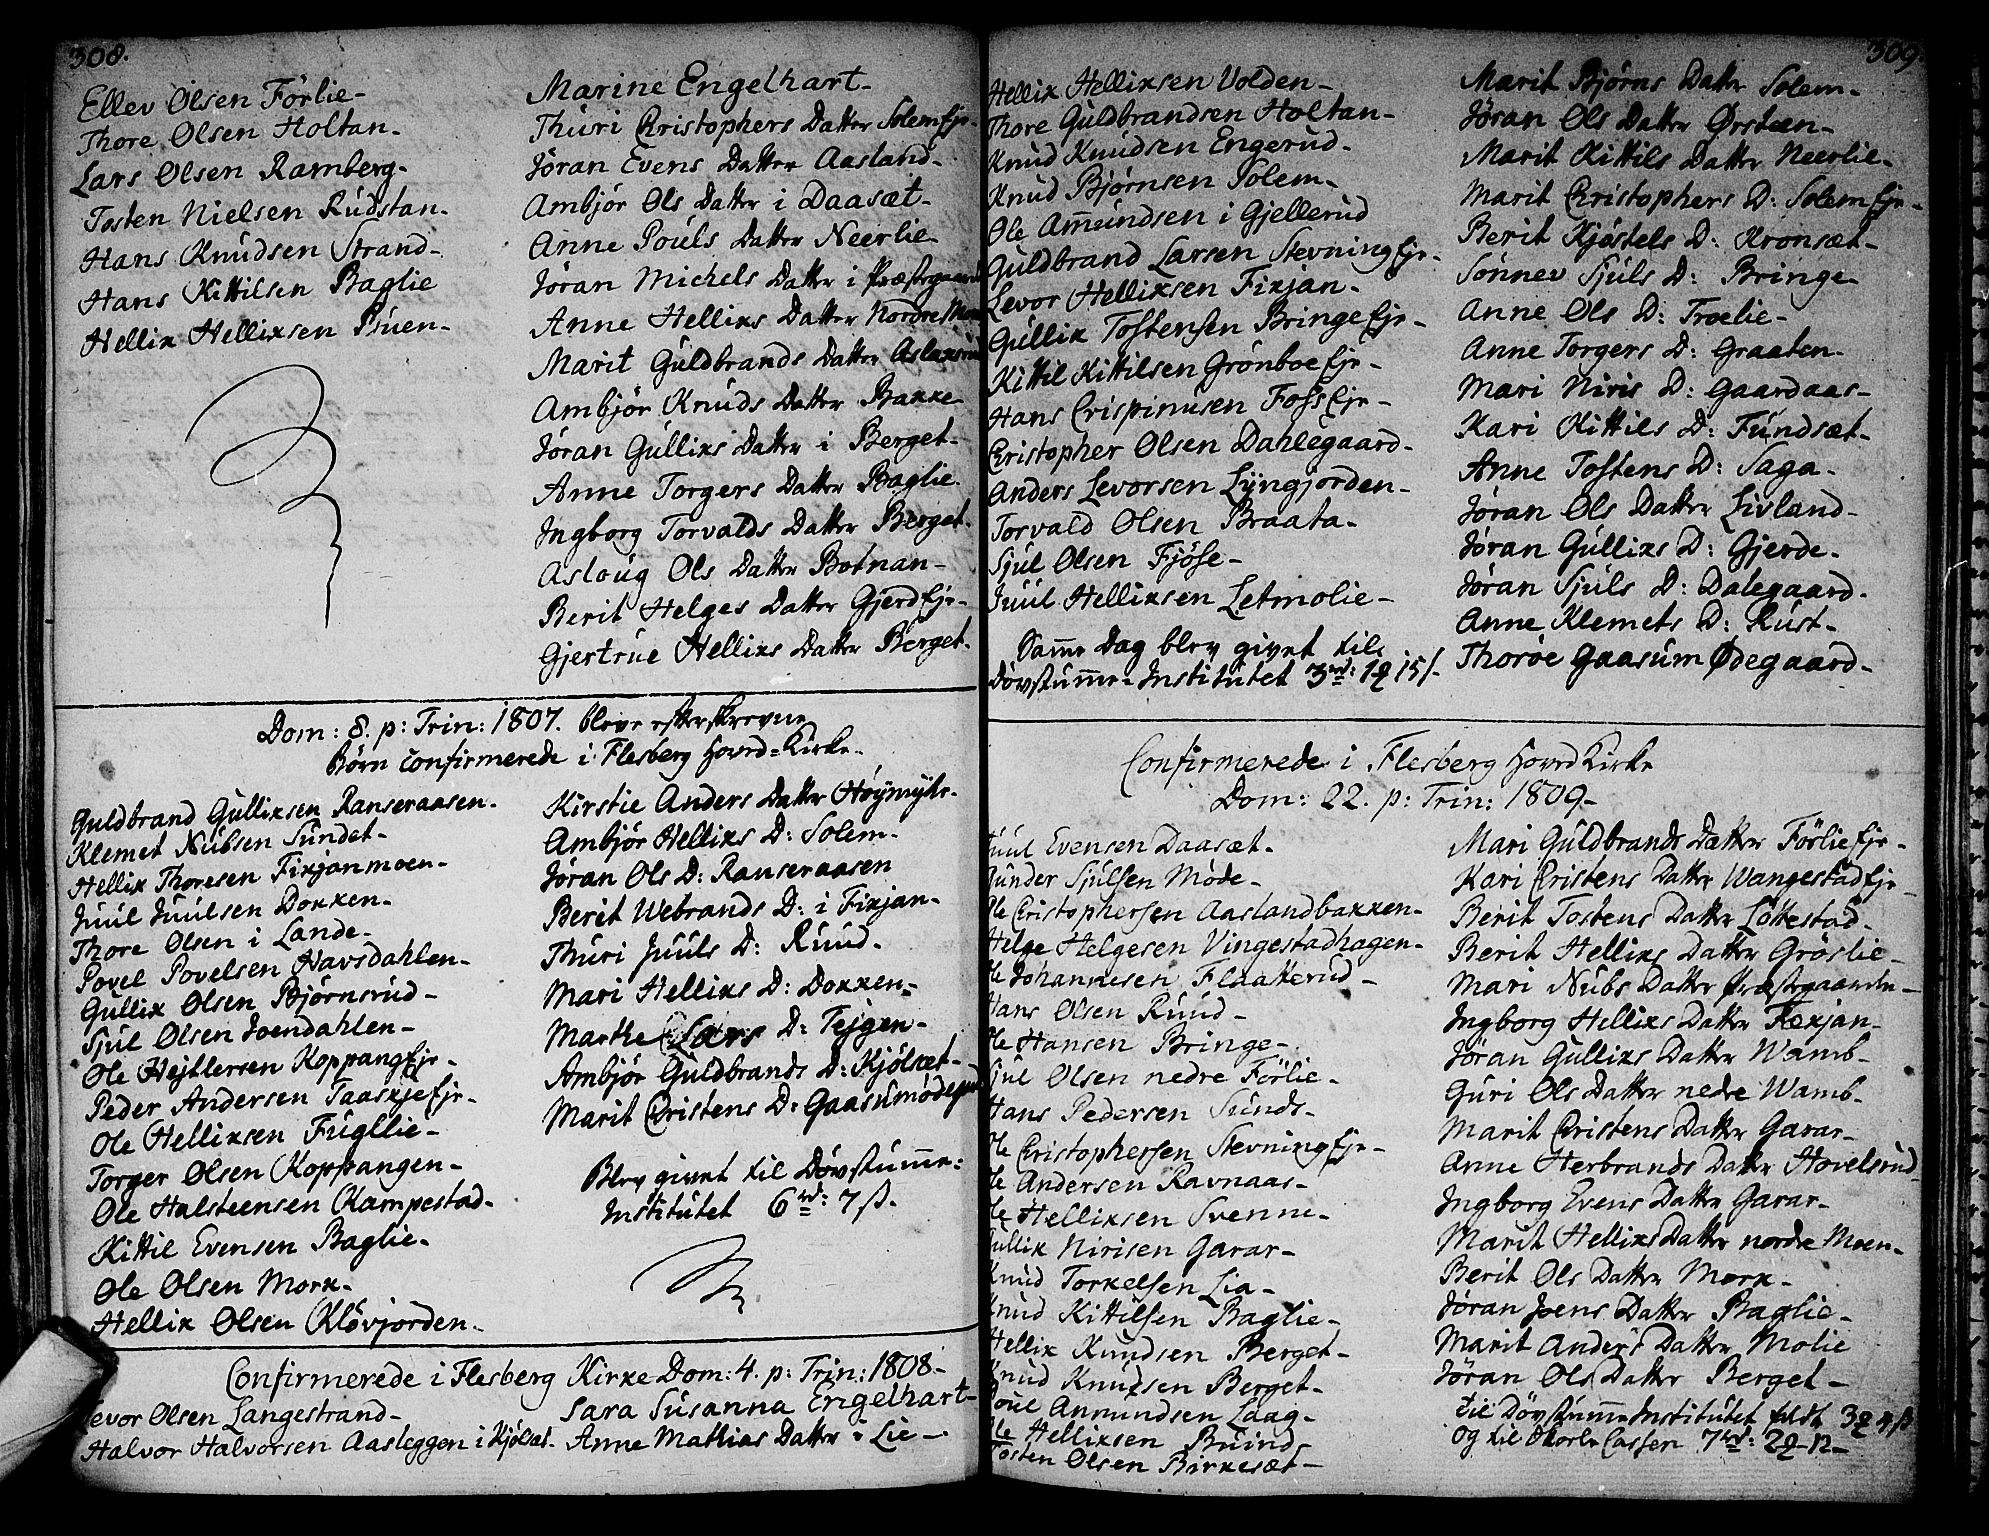 308.
Ellev Olsen Förlie-
Thore Olsen Holtan-
Lars Olsen Ramberg-
Tosten Nielsen Rudstan-
Hans Knudsen Strand-
Hans Kittilsen Baglie
Hellik Helliksen Pruen-
Marine Engelhart-
Thuri Christophers Datter Solem Eje-
Jöran Evens Datter Aasland-
Ambjör Ols Datter i Daasæt-
Anne Pouls Datter Neerlie-
Jöran Michels Datter i Præstegaard
Anne Helliks Datter Nordre Moen
Marit Guldbrands Datter Aslaksrud
Ambjör Knuds Datter Bakke-
Jöran Gulliks Datter i Berget-
Anne Torgers Datter Baglie-
Ingborg Torvalds Datter Berget-
Asloug Ols Datter Botnan-
Berit Helges Datter Gjerd Eje-
Gjertrue Helliks Datter Berget-
Dom: 8. p: Trin: 1807. bleve efterskrevne
Børn confirmerede i Flesberg Hoved-Kirke-
Guldbrand Gulliksen Ranseraasen-
Klemet Nubsen Sundet-
Hellik Thoresen Fikjanmoen-
Juul Juulsen Dokken-
Thore Olsen i Lande-
Povel Povelsen Navsdahlen-
Gullik Olsen Bjørnsrud-
Sjul Olsen Joendahlen-
Ole Hejtlersen Koppang Eje-
Peder Andersen Taaskje Eje-
Ole Helliksen Fugllie-
Torger Olsen Koppangen-
Ole Halsteensen Kampestad-
Kittil Evensen Baglie-
Ole Olsen Mork-
Hellik Olsen Klövjorden-
Kirstie Anders Datter Höymyhr-
Ambjör Helliks D: Solem-
Jöran Ols D: Ranseraasen
Berit Webrands D: i Fikjan-
Thuri Juuls D: Ruud-
Mari Helliks D: Dokken-
Marthe Lars D: Tejgen-
Ambjör Guldbrands D: Kjölsæt-
Marit Christens D: Gaasumödegaard
Blev givet til Døvstumme-
Institutet 6 rd: 7 ß.
Confirmerede i Flesberg Kirke Dom: 4. p: Trin: 1808-
Levor Olsen Langestrand-
Halvor Halvorsen Aasleggen i Kjölsæt-
Sara Susanna Engelhart-
Anne Mathias Datter - Lie-
309.
Hellik Helliksen Volden-
Thore Guldbrandsen Holtan-
Knud Knudsen Engerud-
Knud Bjørnsen Solem-
Ole Amundsen i Gjellerud
Guldbrand Larsen Stevning Eje-
Levor Helliksen Fikjan-
Gullik Tostensen Bringe Eje-
Kittil Kittilsen Grönboe Eje-
Hans Crispinusen Foss Eje-
Christopher Olsen Dahlegaard-
Anders Levorsen Lyngjorden-
Torvald Olsen Braata-
Sjul Olsen Fjöse-
Juul Helliksen Letmolie-
Samme Dag blev givet til
Døvstumme-Institutet 3 rd: 1 ꝗ 15 ß.
Marit Bjørns Datter Solem-
Jöran Ols Datter Ørsteen-
Marit Kittils Datter Neerlie-
Marit Christophers D: Solem Eje-
Berit Kjöstels D: Kronsæt-
Sönnev Sjuls D: Bringe-
Anne Ols D: Troelie-
Anne Torgers D: Graaten-
Mari Niris D: Gaardaas-
Kari Kittils D: Fundsæt-
Anne Tostens D: Saga-
Jöran Ols Datter Livland-
Jöran Gulliks D: Gjerde-
Jöran Sjuls D: Dalegaard-
Anne Klemets D: Rust-
Thoröe Gaasum Ødegaard-
Confirmerede i Flesberg Hoved Kirke
Dom: 22. p: Trin: 1809-
Juul Evensen Daasæt-
Gunder Sjulsen Møde-
Ole Christophersen Aaslandbakken-
Helge Helgesen Vingestadhagen-
Ole Johannesen Flaatterud-
Hans Olsen Ruud-
Ole Hansen Bringe-
Sjul Olsen nedre Förlie-
Hans Pedersen Sunds-
Ole Christophersen Stevning Eje-
Ole Andersen Ravnaas-
Ole Helliksen Svenne-
Gullik Nirisen Garar-
Knud Torkelsen Lia-
Knud Kittilsen Baglie-
Hellik Knudsen Berget-
Knud Knutsen Berget-
Poul Anmundsen Laag-
Ole Helliksen Buind-
Tosten Olsen Birkesæt-
Mari Guldbrands Datter Förlie Eje-
Kari Cristens Datter Wangestad Eje-
Berit Tostens Datter Löttestad-
Berit Helliks Datter Gröslie-
Mari Nubs Datter Præstegaarden-
Ingborg Helliks Datter Fækjan-
Jöran Gulliks Datter Wamb-
Guri Ols Datter nedre Wamb-
Marit Christens Datter Garar-
Anne Herbrands Datter Hovelsrud
Ingborg Evens Datter Garar-
Marit Helliks Datter nordre Moen-
Berit Ols Datter Mork-
Jöran Joens Datter Baglie-
Marit Anders Datter Molie
Jöran Ols Datter Berget-
til Døvstumme Institutet faldt 3 ꝗ 4 ß
og til Skole Cassen 7 rd: 2 ꝗ - 12 -